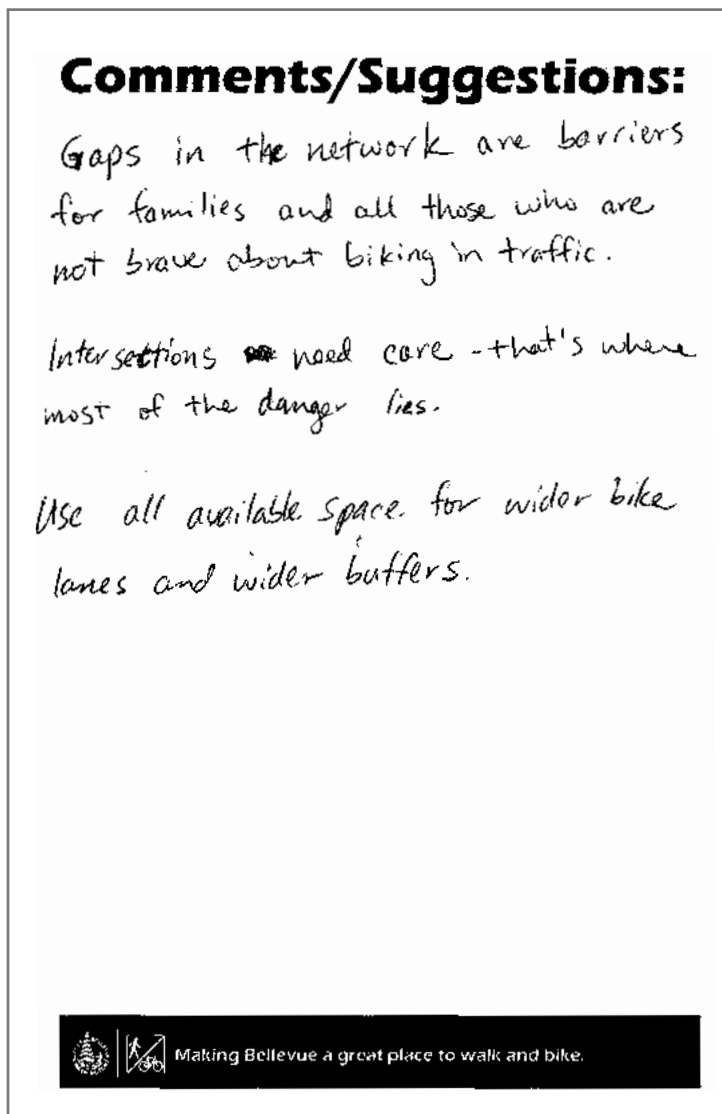 Comments/Suggestions:
Gaps in the network are barriers
for families and all those who are
not brave about biking in traffic.
Intersections need care - that's where
most of the danger lies.
Use all available space for wider bike
lanes and wider buffers.
Making Bellevue a great place to walk and bike.